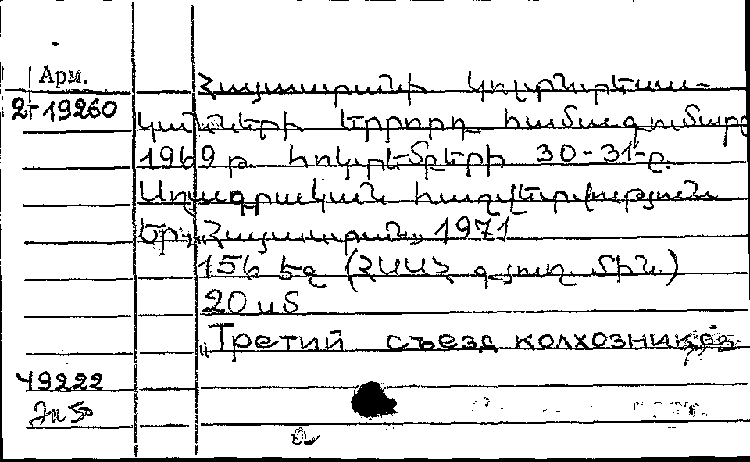 Арм.
2-19260
Հայաստանի կոլտնտեսա-
կանների երրորդ համագումարը
1969 թ. հոկտեմբերի 30-31-ը.
Սղագրական հաշվետվություն
Եր., Հայաստան, 1971
156 էջ (ՀՍՍՀ գյուղ. մին.)
20 սմ
„Третий съезд колхозников
49222